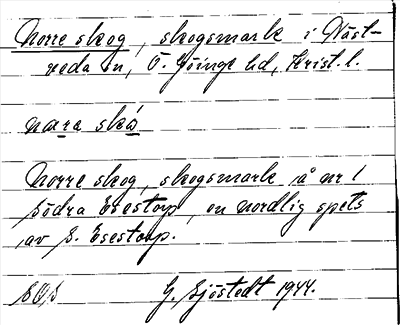 Norre skog, skogsmark i Näst-
reda sn, Ö. Göinge hd, Krist. l.
nora skó
Norre skog, skogsmark å nr 1
Södra Esestorp, en nordlig spets
av S. Esestorp.
SOS G. Sjöstedt 1944.